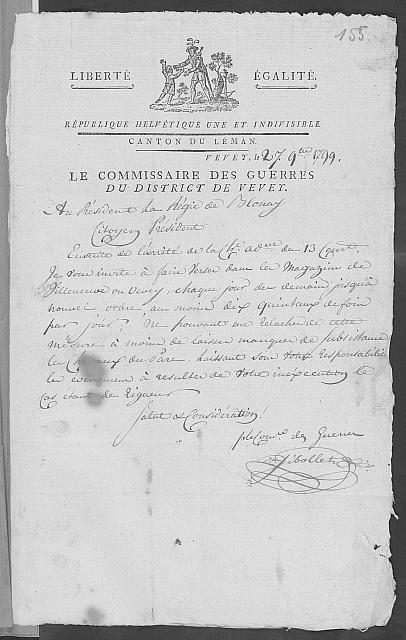 155.
LIBERTÉ ÉGALITÉ.
RÉPUBLIQUE HELVÉTIQUE UNE ET INDIVISIBLE
CANTON DU LÉMAN.
VEVEY, le 27 9bre 1799.
LE COMMISSAIRE DES GUERRES
DU DISTRICT DE VEVEY.
Au Président la Régie de Blonay
Citoyen Président
Ensuite de l'arrêté de la Ch. adve du 13 Cour.t
Je vous invite à faire verser dans les Magazins de
Villeneuve ou Vevey, chaque jour dès demain jusqu'à
nouvel ordre, au moins dix quintaux de foin
par jour; Ne pouvant me relacher de cette
mesure à moins de laisser manquer de subsistance
les Chevaux du Parc, laissant sous votre Responsabilité
les évenemens à resulter de votre inexécution le
cas etant de Rigueur
Salut & Considération!
le Com.re des Guerres
Dibollet